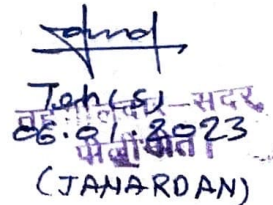 Teh(S)
तहसीलदार-सदर
06.01.2023
पीलीभीत।
(JANARDAN)